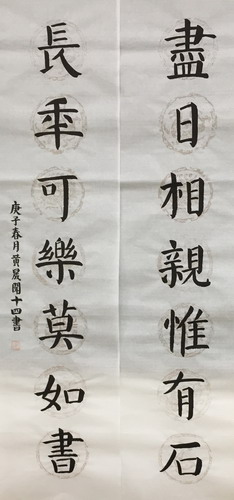 盡日相親惟有石
長年可樂莫如書
庚子春月黃晟閣十四書